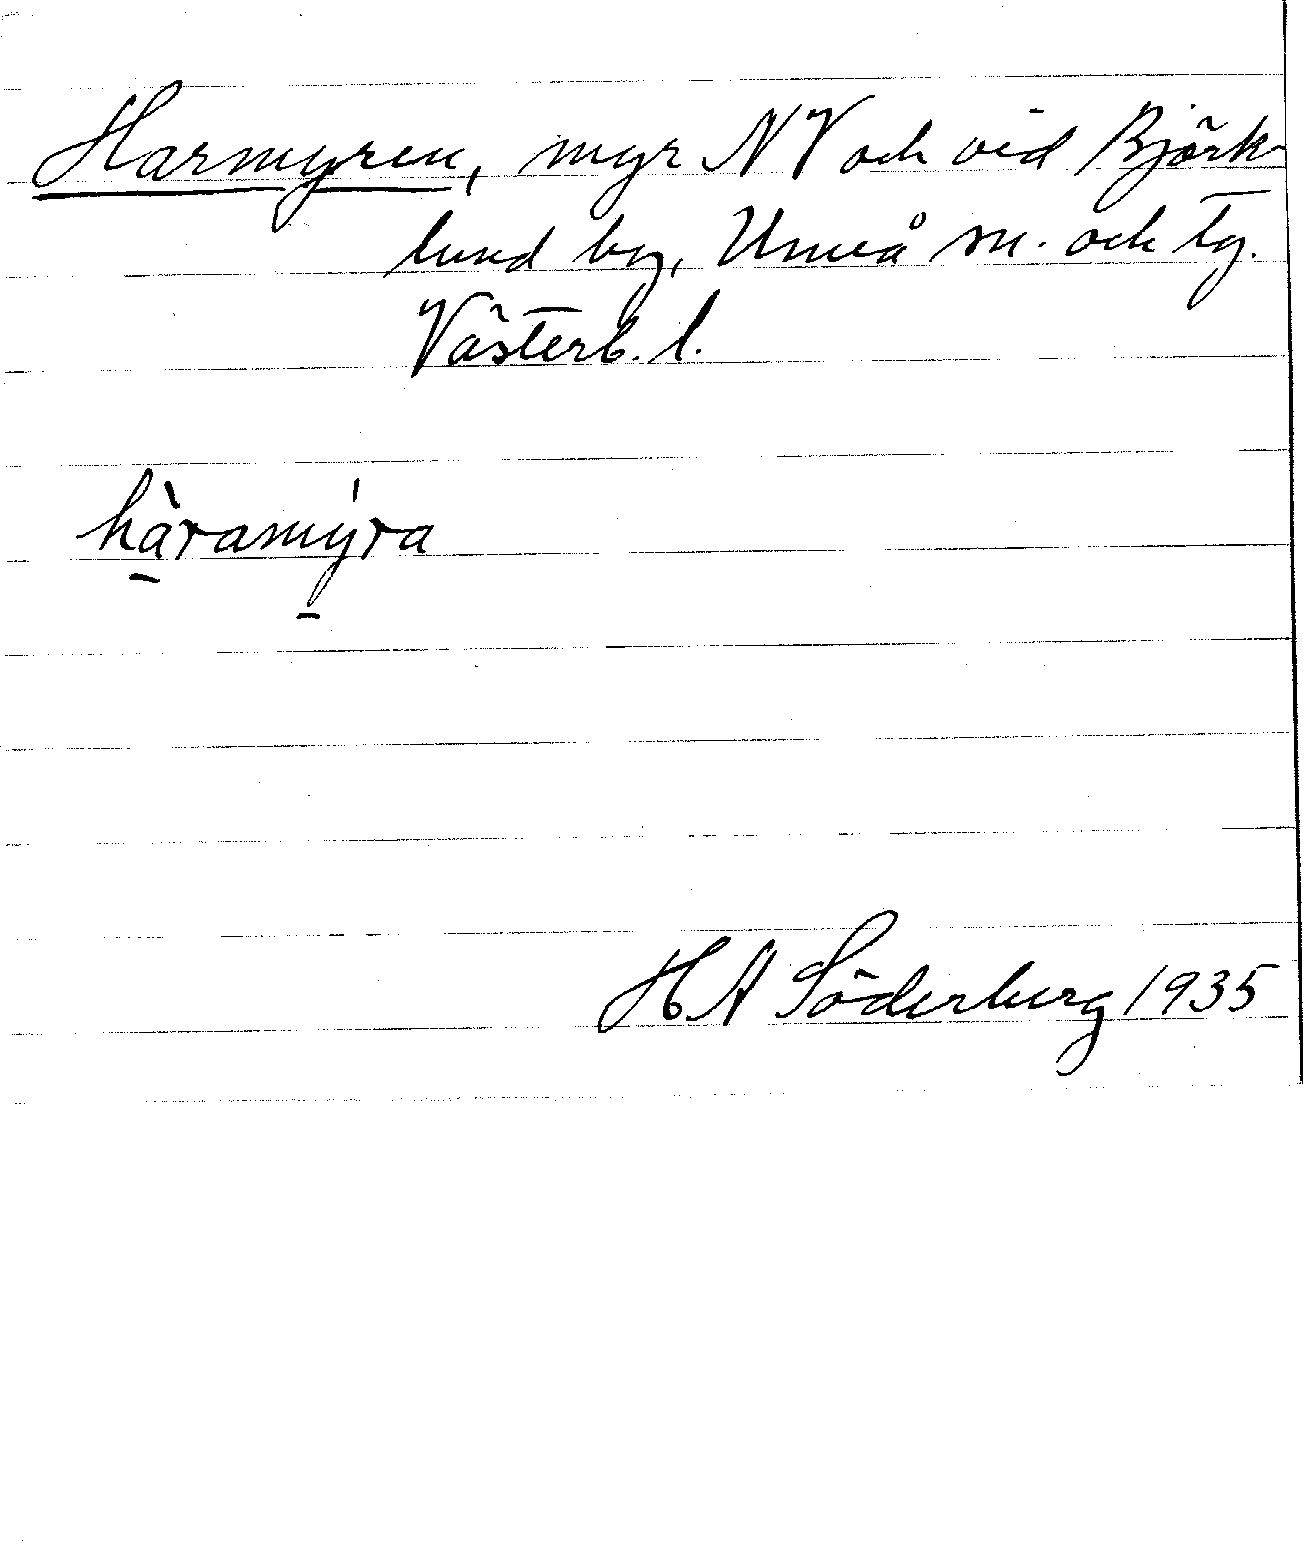 Harmyren, myr NV och vid Björk-
lund by, Umeå sn. och tg.
Västerb. l.
hàramýra
HA Söderberg 1935